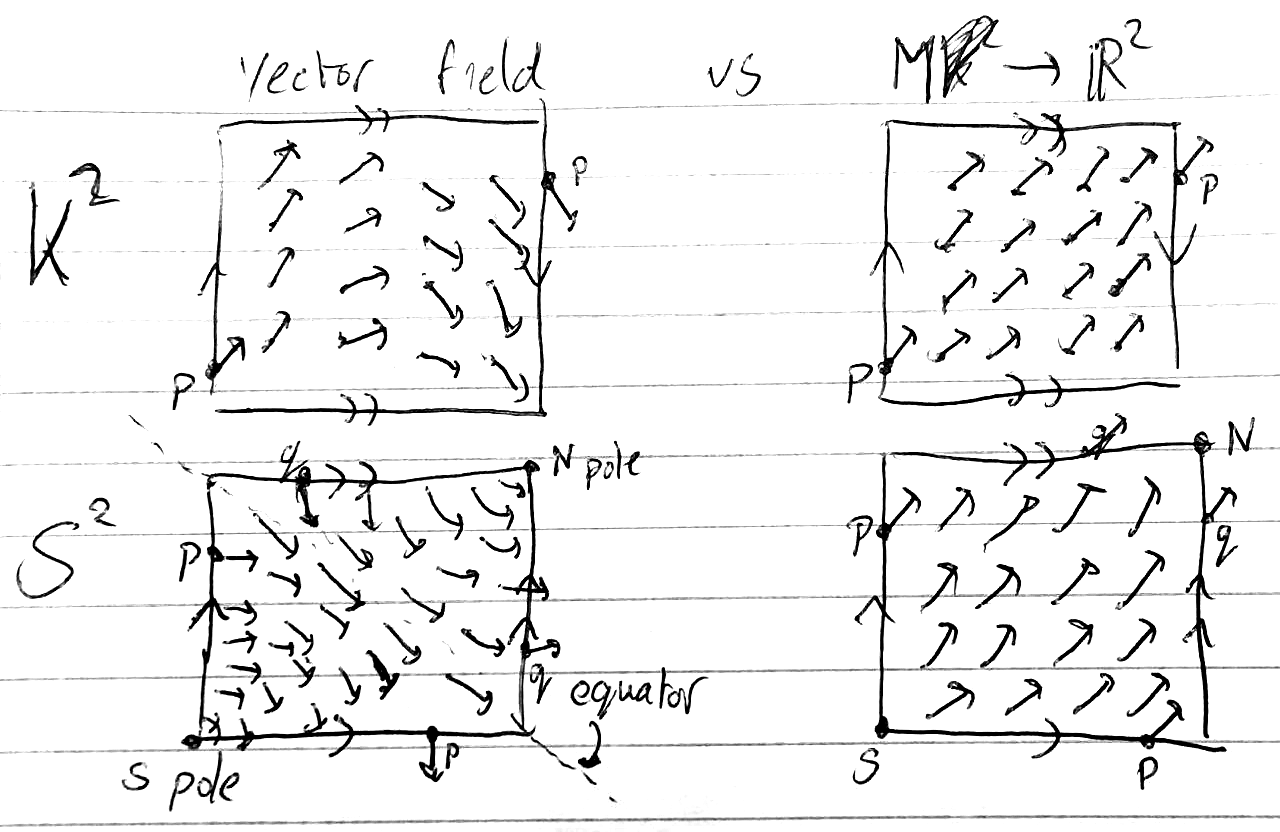 Vector field vs M → ℝ²
K²
P
P
P
P
S²
q
N pole
P
q
equator
P
S pole
q
N
P
q
S
P